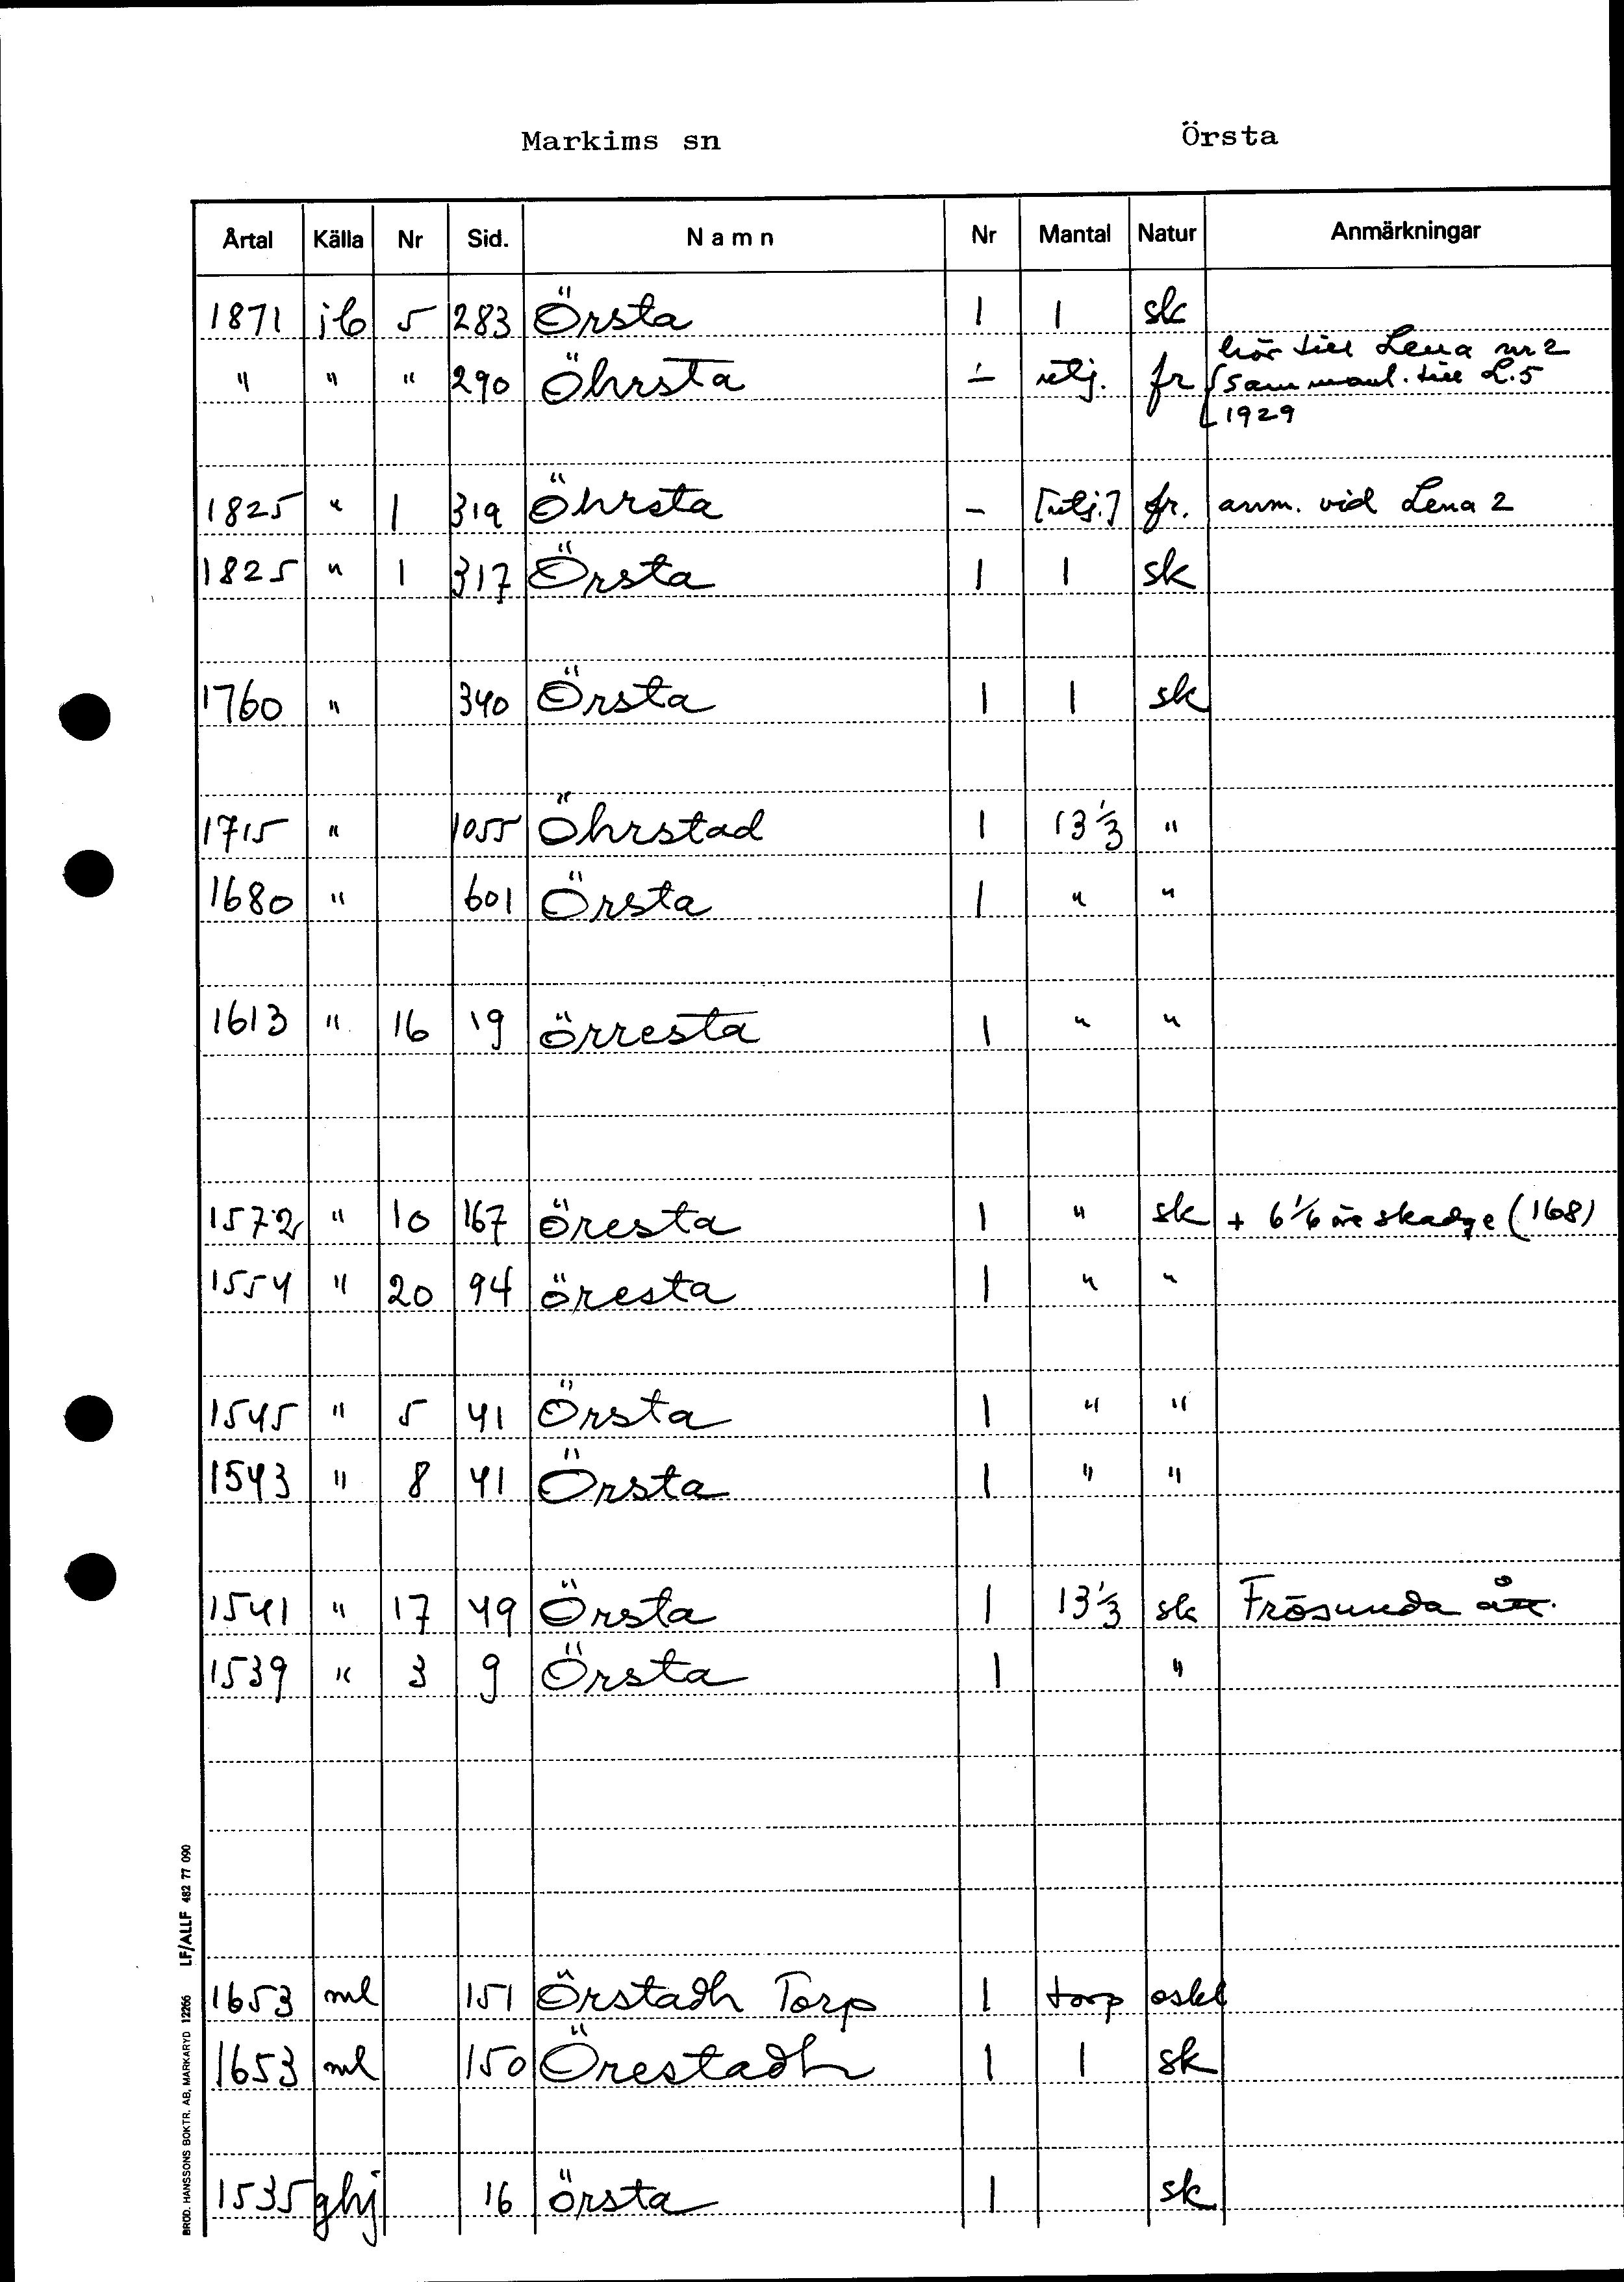 Markims sn Örsta
Årtal Källa Nr Sid. Namn Nr Mantal Natur Anmärkningar
1871 jb 5 283 Örsta 1 1 sk
hör till Lena nr 2
" " " 290 Öhrsta – utj. fr samman l. till L. 5
1929
1825 " 1 319 Öhrsta – [utj.] fr. anm. vid Lena 2
1825 " 1 317 Örsta 1 1 sk
1760 " 340 Örsta 1 1 sk
1715 " 1055 Öhrstad 1 13 1/3 "
1680 " 601 Örsta 1 " "
1613 " 16 19 örresta 1 " "
1572 " 10 167 öresta 1 " sk + 6 1/6 öre skadge (168)
1554 " 20 94 öresta 1 " "
1545 " 5 41 Örsta 1 " "
1543 " 8 41 Örsta 1 " "
1541 " 17 49 Örsta 1 13 1/3 sk Frösunda
1539 " 3 9 Örsta 1 "
1653 ml 151 Örstadh Torp 1 torp oskl
1653 ml 150 Örestadh 1 1 sk
1535 ghj 16 örsta 1 sk
BROD. HANSSONS BOKTR. AB, MARKARYD 12266 LF/ALLF 482 77 090